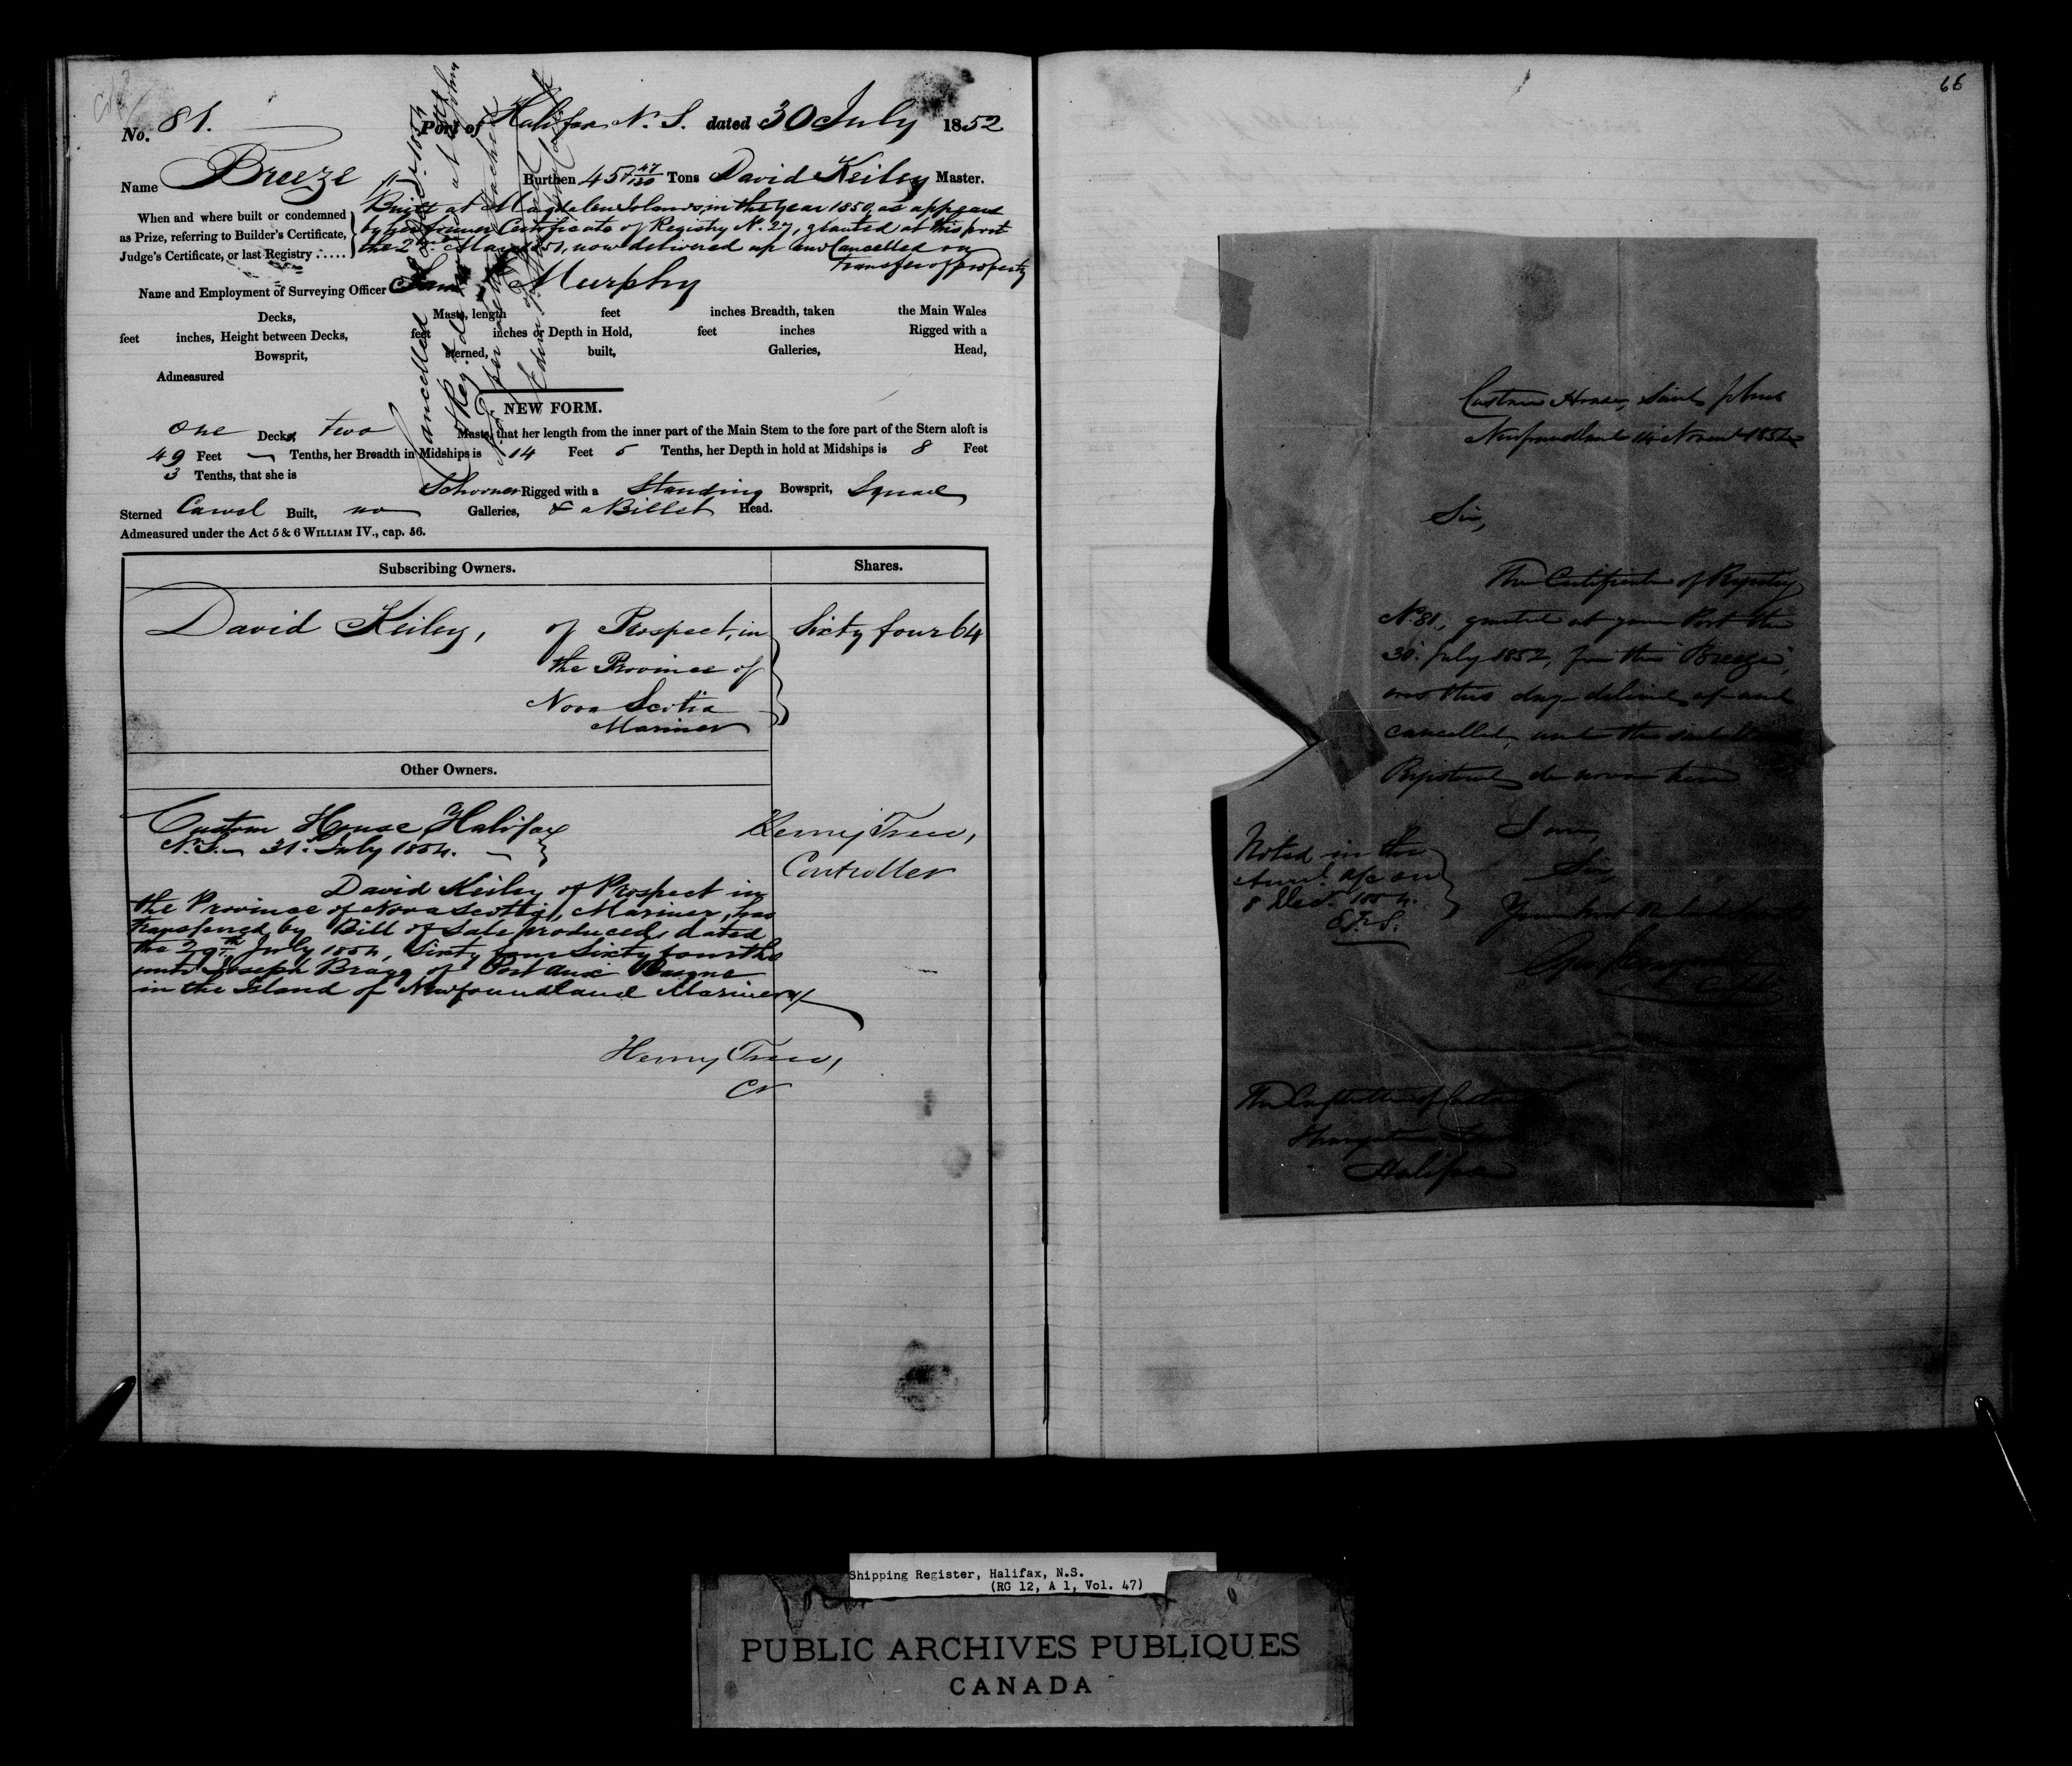 No. 81. Port of Halifax N. S. dated 30 July 1852
Name Breeze Burthen 45 47/130 Tons David Keiley Master.
When and where built or condemned
as Prize, referring to Builder's Certificate,
Judge's Certificate, or last Registry
Built at Magdalen Islands, in the year 1850, as appears
by her former Certificate of Registry No. 27, granted at this port
the 2nd May 1851, now delivered up and Cancelled on
transfer of property
Name and Employment of Surveying Officer Murphy
Decks, Masts, length feet inches Breadth, taken the Main Wales
feet inches, Height between Decks, feet inches or Depth in Hold, feet inches Rigged with a
Bowsprit, sterned, built, Galleries, Head,
Admeasured
Cancelled & Registered
NEW FORM.
One Decks, two Masts, that her length from the inner part of the Main Stem to the fore part of the Stern aloft is
49 Feet Tenths, her Breadth in Midships is 14 Feet 5 Tenths, her Depth in hold at Midships is 8 Feet
3 Tenths, that she is
Schooner Rigged with a Standing Bowsprit, Square
Sterned Carvel Built, no Galleries, & a Billet Head.
Admeasured under the Act 5 & 6 WILLIAM IV., cap. 56.
Subscribing Owners. Shares.
David Keiley, of Prospect, in Sixty four 64
the Province of
Nova Scotia
Mariner
Other Owners.
Custom House Halifax
N.S. 31st July 1854.
Henry Trew,
Controller
David Keiley of Prospect in
the Province of Nova Scotia, Mariner, has
transferred by Bill of Sale produced, dated
the 29th July 1854, Sixty four Sixty fourths
unto Joseph Bragg of Port aux Basque
in the Island of Newfoundland Mariner
Henry Trew,
Cr
66
Custom House, Saint Johns
Newfoundland 14 Novemr 1854
Sir,
The Certificate of Registry
No. 81, granted at your Port the
30th July 1852, for the "Breeze",
was this day delivered up and
cancelled, and the
Registered de novo here
I am,
Sir,
Your
Noted in the
a/c on
8 Decr. 1854.
The Controller of Customs
Halifax
Shipping Register, Halifax, N.S.
(RG 12, A 1, Vol. 47)
PUBLIC ARCHIVES PUBLIQUES
CANADA